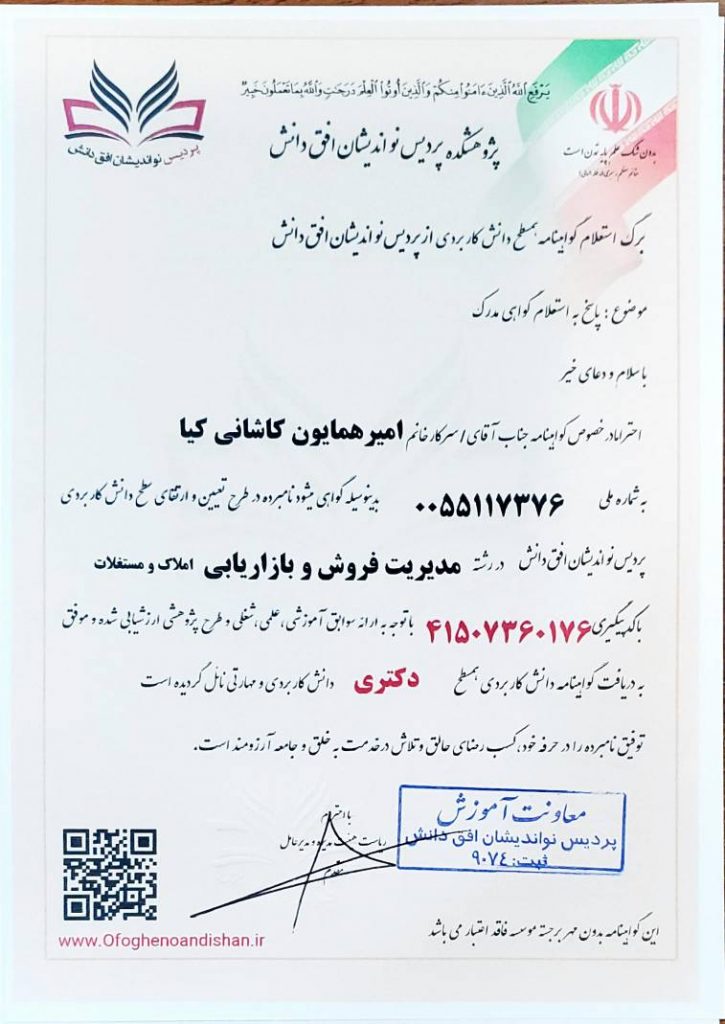 يَرْفَعِ اللَّهُ الَّذِينَ ءَامَنُوا مِنكُمْ وَالَّذِينَ أُوتُوا الْعِلْمَ دَرَجَاتٍ وَاللَّهُ بِمَا تَعْمَلُونَ خَبِيرٌ
پردیس نواندیشان افق دانش
بدون شک علم پایه تمدن است
پژوهشکده پردیس نواندیشان افق دانش
برگ استعلام گواهینامه همسطح دانش کاربردی از پردیس نواندیشان افق دانش
موضوع : پاسخ به استعلام گواهی مدرک
با سلام و دعای خیر
احتراما در خصوص گواهینامه جناب آقای / سرکار خانم امیرهمایون کاشانی کیا
به شماره ملی ۰۰۵۵۱۱۷۳۷۶ بدینوسیله گواهی میشود نامبرده در طرح تعیین و ارتقای سطح دانش کاربردی
پردیس نواندیشان افق دانش در رشته مدیریت فروش و بازاریابی املاک و مستغلات
با کد پیگیری ۴۱۵۰۷۳۶۰۱۷۶ با توجه به ارائه سوابق آموزشی، علمی، شغلی و طرح پژوهشی ارزشیابی شده و موفق
به دریافت گواهینامه دانش کاربردی همسطح دکتری دانش کاربردی و مهارتی نائل گردیده است
توفیق نامبرده را در حرفه خود، کسب رضای خالق و تلاش در خدمت به خلق و جامعه آرزومند است.
با احترام
ریاست هیئت مدیره و مدیرعامل
معاونت آموزش
پردیس نواندیشان افق دانش
ثبت: ۹۰۷٤
این گواهینامه بدون مهر برجسته موسسه فاقد اعتبار می باشد
www.Ofoghenoandishan.ir